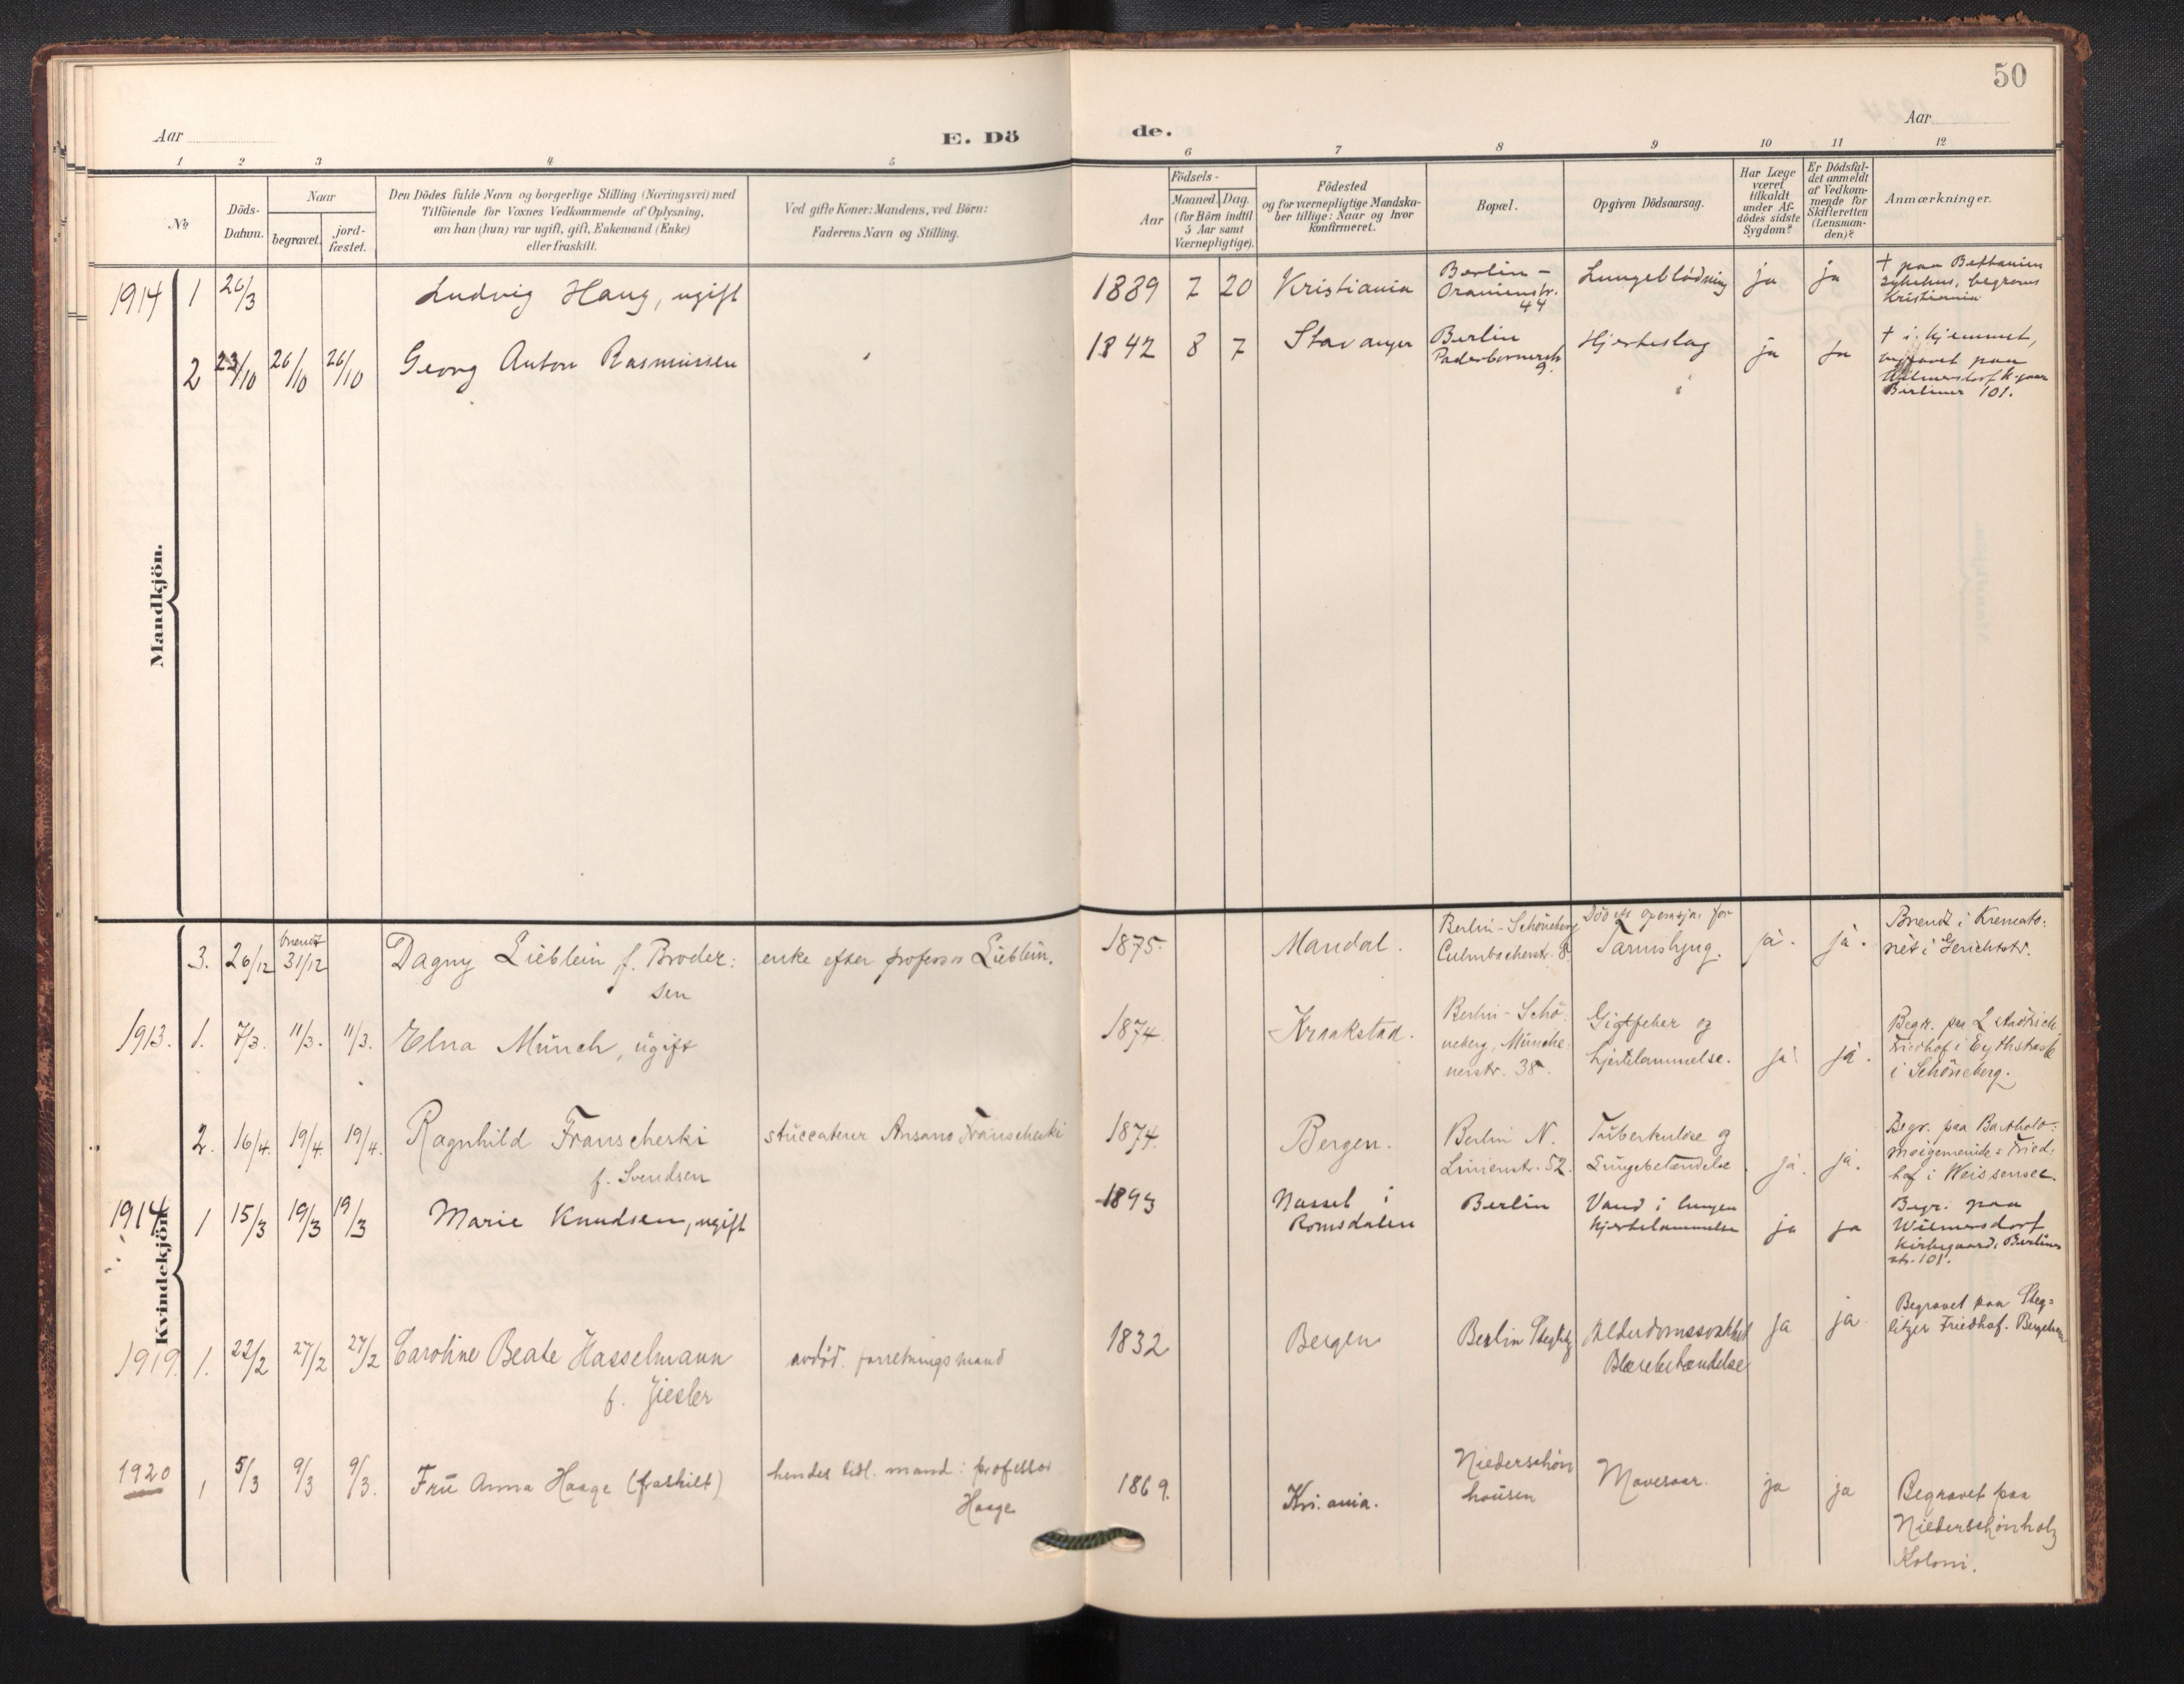 50
Aar
E. Dö
de.
Aar
1 2 3 4 5 6 7 8 9 10 11 12
No
Döds-
Datum.
Naar
begravet.
jord-
fæstet.
Den Dödes fulde Navn og borgerlige Stilling (Næringsvei) med
Tilföiende for Voxnes Vedkommende af Oplysning,
om han (hun) var ugift, gift, Enkemand (Enke)
eller fraskilt.
Ved gifte Koner: Mandens, ved Börn:
Faderens Navn og Stilling.
Födsels-
Aar
Maaned. Dag.
(for Börn indtil
5 Aar samt
Værnepligtige).
Födested
og for værnepligtige Mandska-
ber tillige: Naar og hvor
konfirmeret.
Bopæl.
Opgiven Dödsaarsag.
Har Læge
været
tilkaldt
under Af-
dödes sidste
Sygdom?
Er Dödsfal-
det anmeldt
af Vedkom-
mende for
Skifteretten
(Lensman-
den)?
Anmærkninger.
Mandkjön.
1914 1 26/3 Ludvig Haug, ugift 1889 7 20 Kristiania
Berlin -
Oranienstr.
44
Lungeblödning ja ja
† paa Bethanien
sykehus, begraves
Kristiania
2 23/10 26/10 26/10 Georg Anton Rasmussen 1842 8 7 Stavanger
Berlin
Paderbornerstr.
9.
Hjerteslag ja ja
† i hjemmet,
begravet paa
Wilmersdorf k-gaar
Berliner 101.
Kvindekjön.
3. 26/12 brendt
31/12
Dagny Lieblein f. Broder:
sen
enke efter professor Lieblein.
1875. Mandal.
Berlin-Schöneberg
Culmbacherstr. 8
Död eft. operasja. for
Tarmslyng.
ja. ja.
Brendt i Kremato:
riet i Gerichtstr.
1913. 1. 7/3. 11/3. 11/3. Elna Münch, ugift 1874. Kraakstad.
Berlin-Schö:
neberg, Münche:
nerstr. 38.
Gigtfeber og
hjertelammelse.
ja ja.
Begr. paa
Friedhof i Eythstrasse
i Schöneberg.
2. 16/4. 19/4. 19/4. Ragnhild Franscheski
f. Svendsen
stuccateur Ansano Franscheski
1874. Bergen.
Berlin N.
Linienstr. 52.
Tuberkulose og
Lungebetændelse
ja. ja.
Begr. paa Bartholo:
mäigemeinde: Fried:
hof i Weissensee.
1914 1 15/3 19/3 19/3 Marie Knudsen, ugift 1893
Nasset i
Romsdalen
Berlin
Vand i lungen
hjertelammelse
ja ja
Begr. paa
Wilmersdorf
Kirkegaard, Berliner
str. 101.
1919. 1. 22/2 27/2 27/2 Caroline Beate Hasselmann
f. Ziesler
avdöd. forretningsmand
1832 Bergen Berlin Steglitz
Alderdomssvakhet
Blærebetændelse
ja ja
Begravet paa Steg=
litzer Friedhof. Bergstrasse
1920 1 5/3 9/3 9/3. Frü Anna Haage (fraskilt)
hendes tidl. mand: professor
Haage
1869. Kri.ania.
Niederschön
hausen
Mavesaar. ja ja
Begravet paa
Niederschönholz
Koloni.